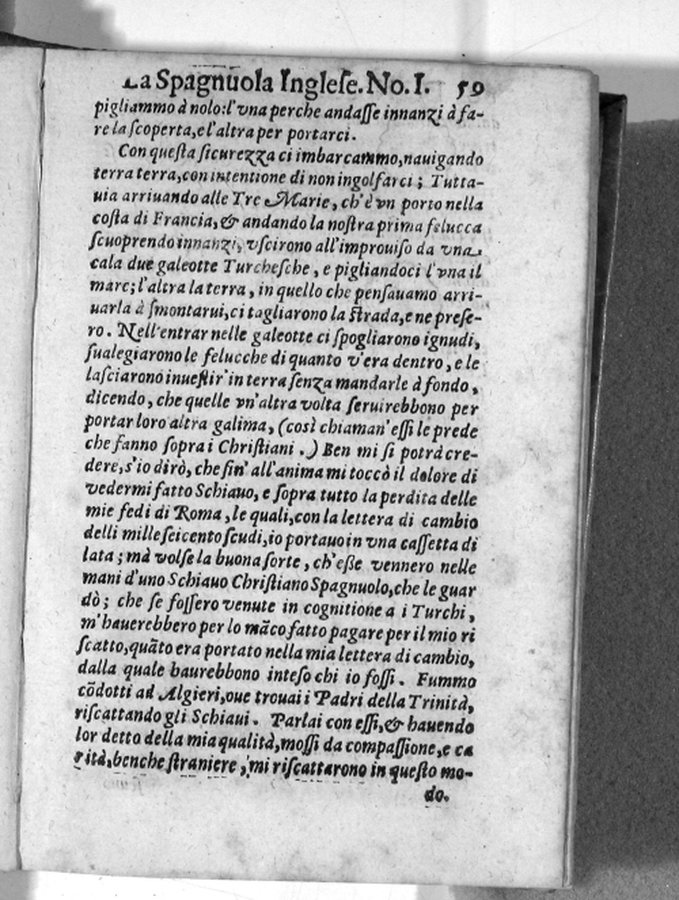 La Spagnuola Inglese. No. I. 59
pigliammo à nolo: l'vna perche andasse innanzi à fa-
re la scoperta, e l'altra per portarci.
Con questa sicurezza ci imbarcammo, nauigando
terra terra, con intentione di non ingolfarci; Tutta-
uia arriuando alle Tre Marie, ch'è vn porto nella
costa di Francia, & andando la nostra prima felucca
scuoprendo innanzi, vscirono all'improuiso da vna
cala due galeotte Turchesche, e pigliandoci l'vna il
mare; l'altra la terra, in quello che pensauamo arri-
uarla à smontarui, ci tagliarono la strada, e ne prese-
ro. Nell'entrar nelle galeotte ci spogliarono ignudi,
sualegiarono le felucche di quanto v'era dentro, e le
lasciarono inuestir' in terra senza mandarle à fondo,
dicendo, che quelle vn'altra volta seruirebbono per
portar loro altra galima, (così chiaman' essi le prede
che fanno sopra i Christiani.) Ben mi si potrà cre-
dere, s'io dirò, che fin' all'anima mi toccò il dolore di
vedermi fatto Schiauo, e sopra tutto la perdita delle
mie fedi di Roma, le quali, con la lettera di cambio
delli mille seicento scudi, io portauo in vna cassetta di
lata; mà volse la buona sorte, ch'esse vennero nelle
mani d'uno Schiauo Christiano Spagnuolo, che le guar
dò; che se fossero venute in cognitione a i Turchi,
m'hauerebbero per lo mãco fatto pagare per il mio ri
scatto, quãto era portato nella mia lettera di cambio,
dalla quale haurebbono inteso chi io fossi. Fummo
cõdotti ad Algieri, oue trouai i Padri della Trinità,
riscattando gli Schiaui. Parlai con essi, & hauendo
lor detto della mia qualità, mossi da compassione, e ca
rità, benche straniere, mi riscattarono in questo mo-
do.